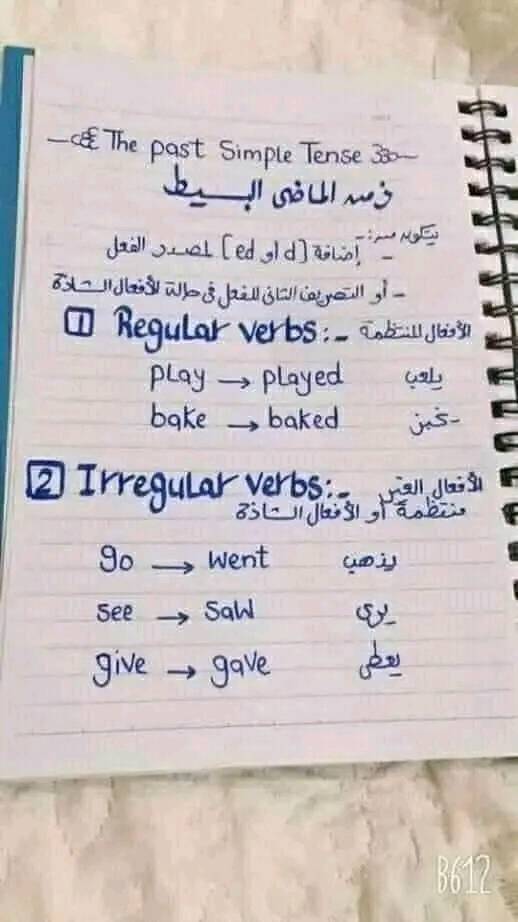 The past Simple Tense
زمن الماضى البسيط
يتكون من:-
- إضافة [d او ed] لمصدر الفعل
- أو التصريف الثانى للفعل فى حالة الأفعال الشاذة
1 Regular verbs:- الأفعال المنتظمة
play → played يلعب
bake → baked يخبز
2 Irregular verbs:- الأفعال الغير
منتظمة أو الأفعال الشاذة
go → went يذهب
see → saw يرى
give → gave يعطى
B612